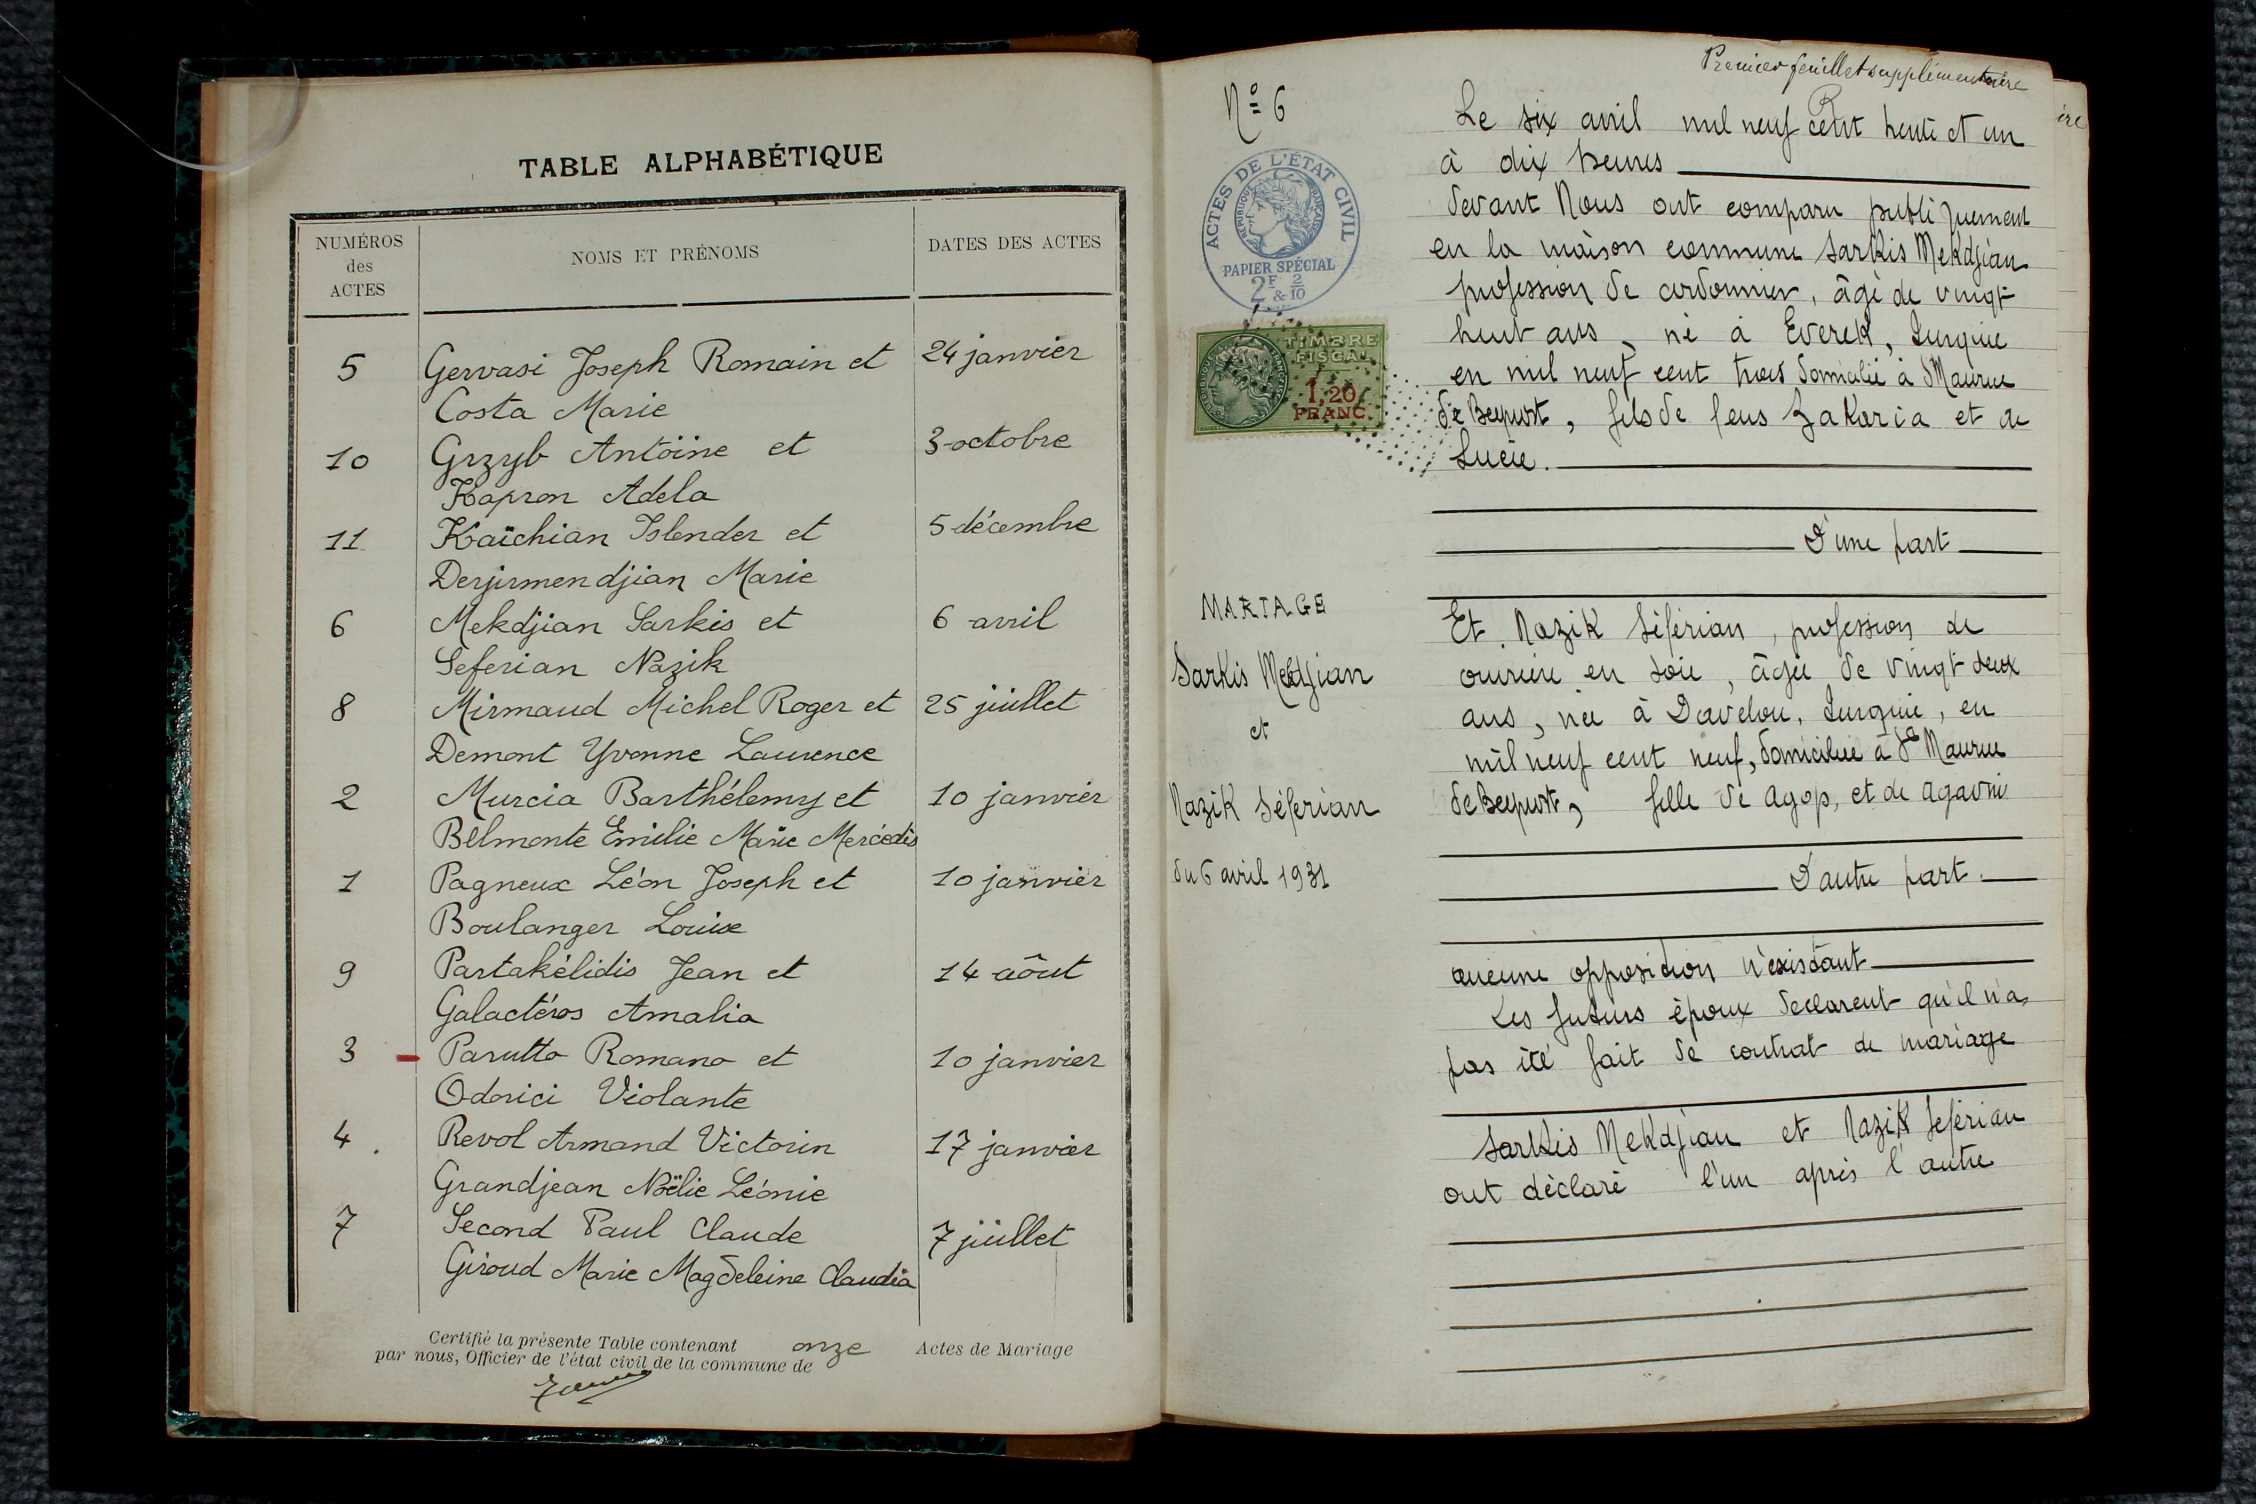 TABLE ALPHABÉTIQUE
NUMÉROS
des
ACTES
NOMS ET PRÉNOMS
DATES DES ACTES
5 Gervasi Joseph Romain et 24 janvier
Costa Marie
10 Grzyb Antoine et 3 octobre
Kapron Adela
11 Kaïchian Islender et 5 décembre
Derjirmendjian Marie
6 Mekdjian Sarkis et 6 avril
Seferian Nazik
8 Mirmaud Michel Roger et 25 juillet
Demont Yvonne Laurence
2 Murcia Barthélemy et 10 janvier
Belmonte Emilie Marie Mercédès
1 Pagneux Léon Joseph et 10 janvier
Boulanger Louise
9 Partakélidis Jean et 14 aôut
Galactéros Amalia
3 Parutto Romano et 10 janvier
Odorici Violante
4 Revol Armand Victorin 17 janvier
Grandjean Noëlie Léonie
7 Second Paul Claude 7 juillet
Giroud Marie Magdeleine Claudia
Certifié la présente Table contenant onze Actes de Mariage
par nous, Officier de l'état civil de la commune de
Premier feuillet supplémentaire
N° 6
ACTES DE L'ÉTAT CIVIL
RÉPUBLIQUE FRANÇAISE
PAPIER SPÉCIAL
2F & 2/10
TIMBRE
FISCAL
1,20
FRANC.
MARIAGE
Sarkis Mekdjian
et
Nazik Séferian
du 6 avril 1931
Le six avril mil neuf cent trente et un
à dix heures
devant Nous ont comparu publiquement
en la maison commune Sarkis Mekdjian
profession de cordonnier, âgé de vingt
huit ans, né à Everek, Turquie
en mil neuf cent trois domicilié à St Maurice
de Beynost, fils de feus Zakaria et de
Lucie.
D'une part
Et Nazik Séférian, profession de
ouvrière en soie, âgée de vingt deux
ans, née à Davelou, Turquie, en
mil neuf cent neuf, domiciliée à St Maurice
de Beynost, fille de Agop, et de Agavni
D'autre part
aucune opposition n'existant
Les futurs époux déclarent qu'il n'a
pas été fait de contrat de mariage
Sarkis Mekdjian et Nazik Seférian
ont déclaré l'un après l'autre